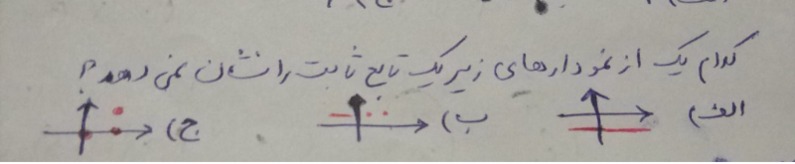 کدام یک از نمودارهای زیر یک تابع ثابت را نشان نمی دهد؟
الف) ب) ج)